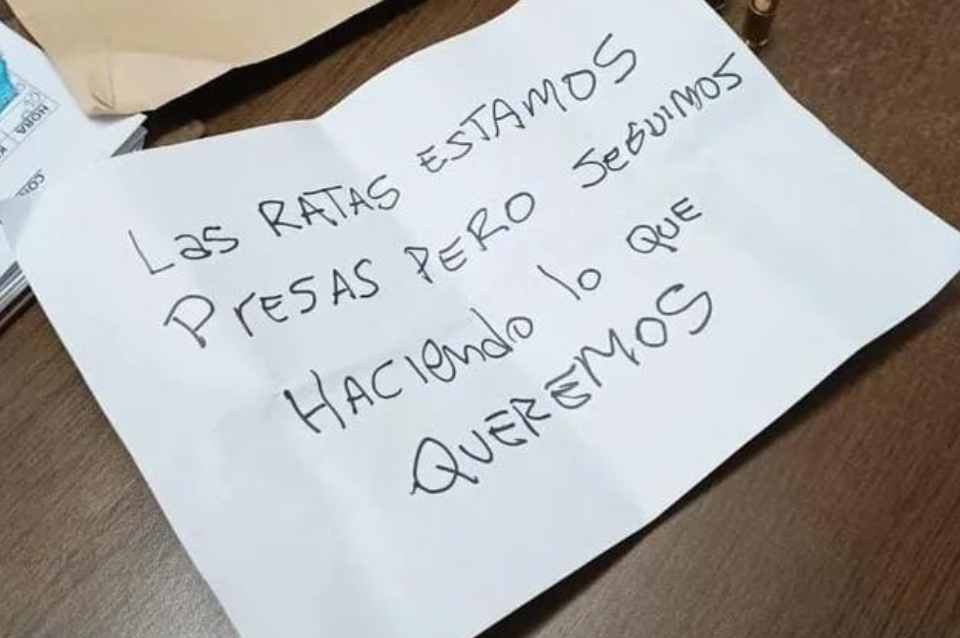 Las RATAS ESTAMOS
PresAS PERO SeGUIMOS
HACIendo lo QUE
QUEREMOS
HORA